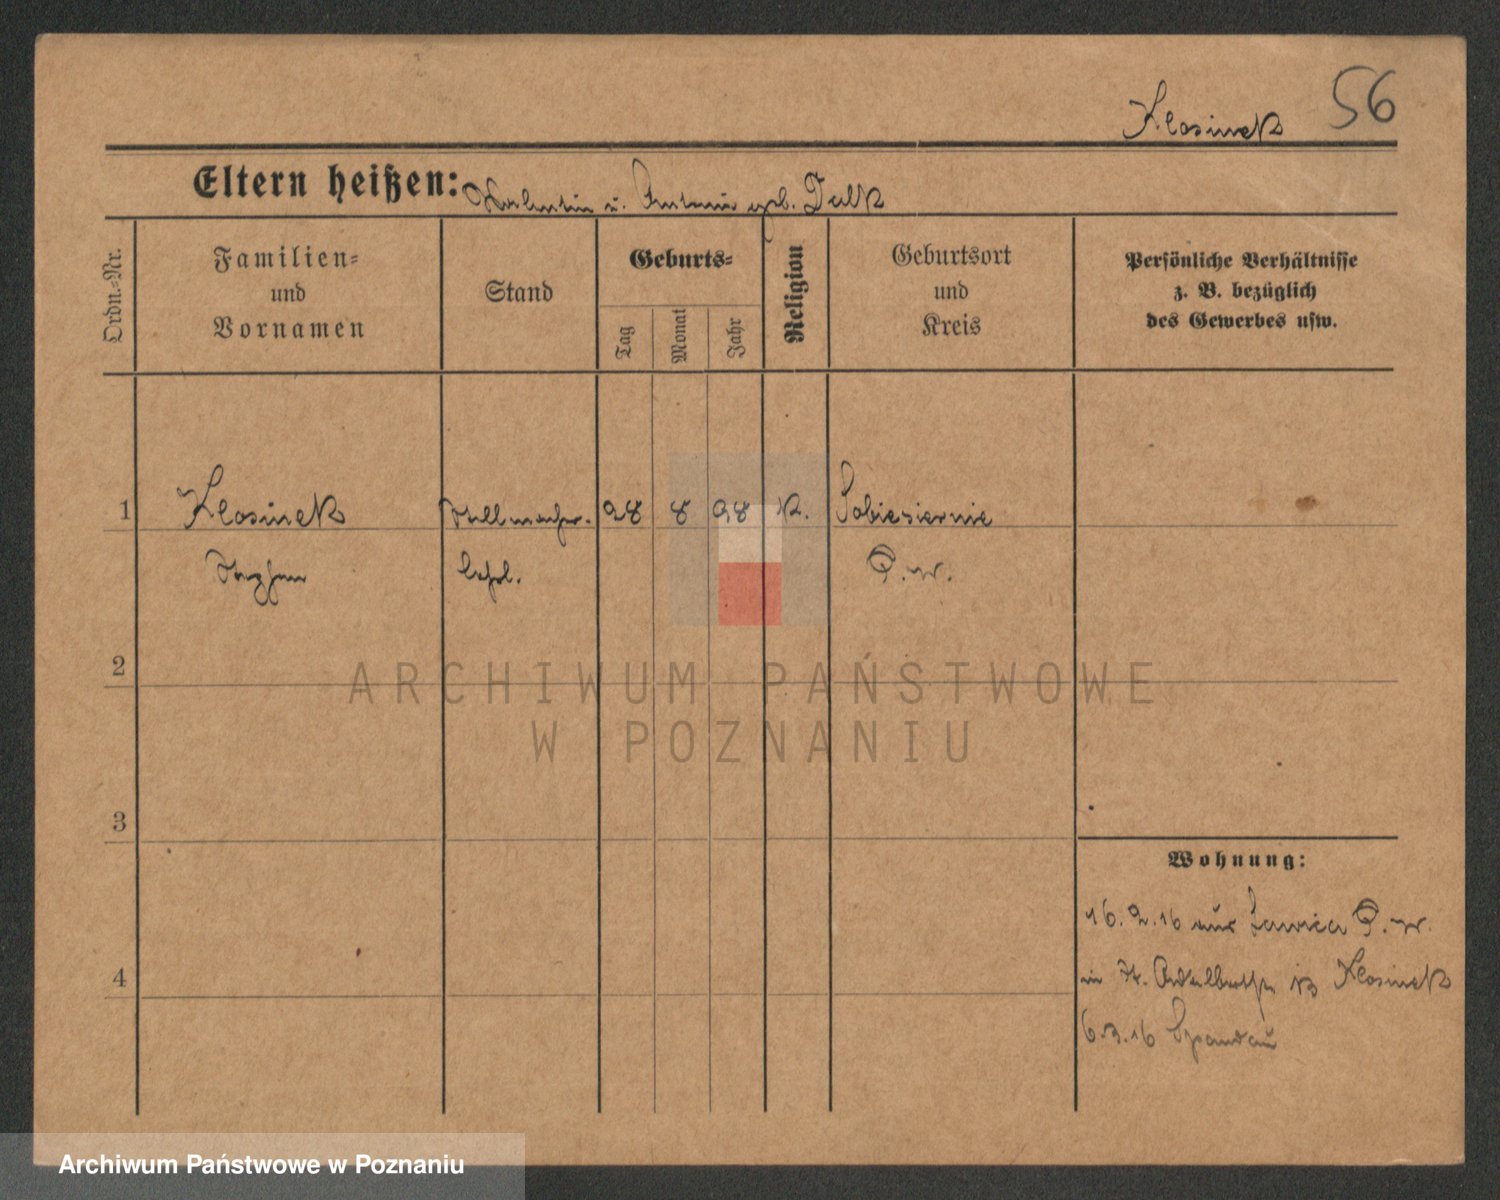 Klosinek 56
Eltern heißen: Valentin u. Antonie geb. Dulk
Ordn.-Nr.
Familien-
und
Vornamen
Stand
Geburts-
Tag
Monat
Jahr
Religion
Geburtsort
und
Kreis
Persönliche Verhältnisse
z. B. bezüglich
des Gewerbes usw.
1 Klosinek Stellmacher- 28 8 98 K. Sobiesiernie
Stephan lehrl. P. W.
2
ARCHIWUM PAŃSTWOWE
W POZNANIU
3
Wohnung:
16.2.16 aus Ławica P. W.
4
in St. Adalbertstr. Klosinek
6.3.16 Spandau
Archiwum Państwowe w Poznaniu